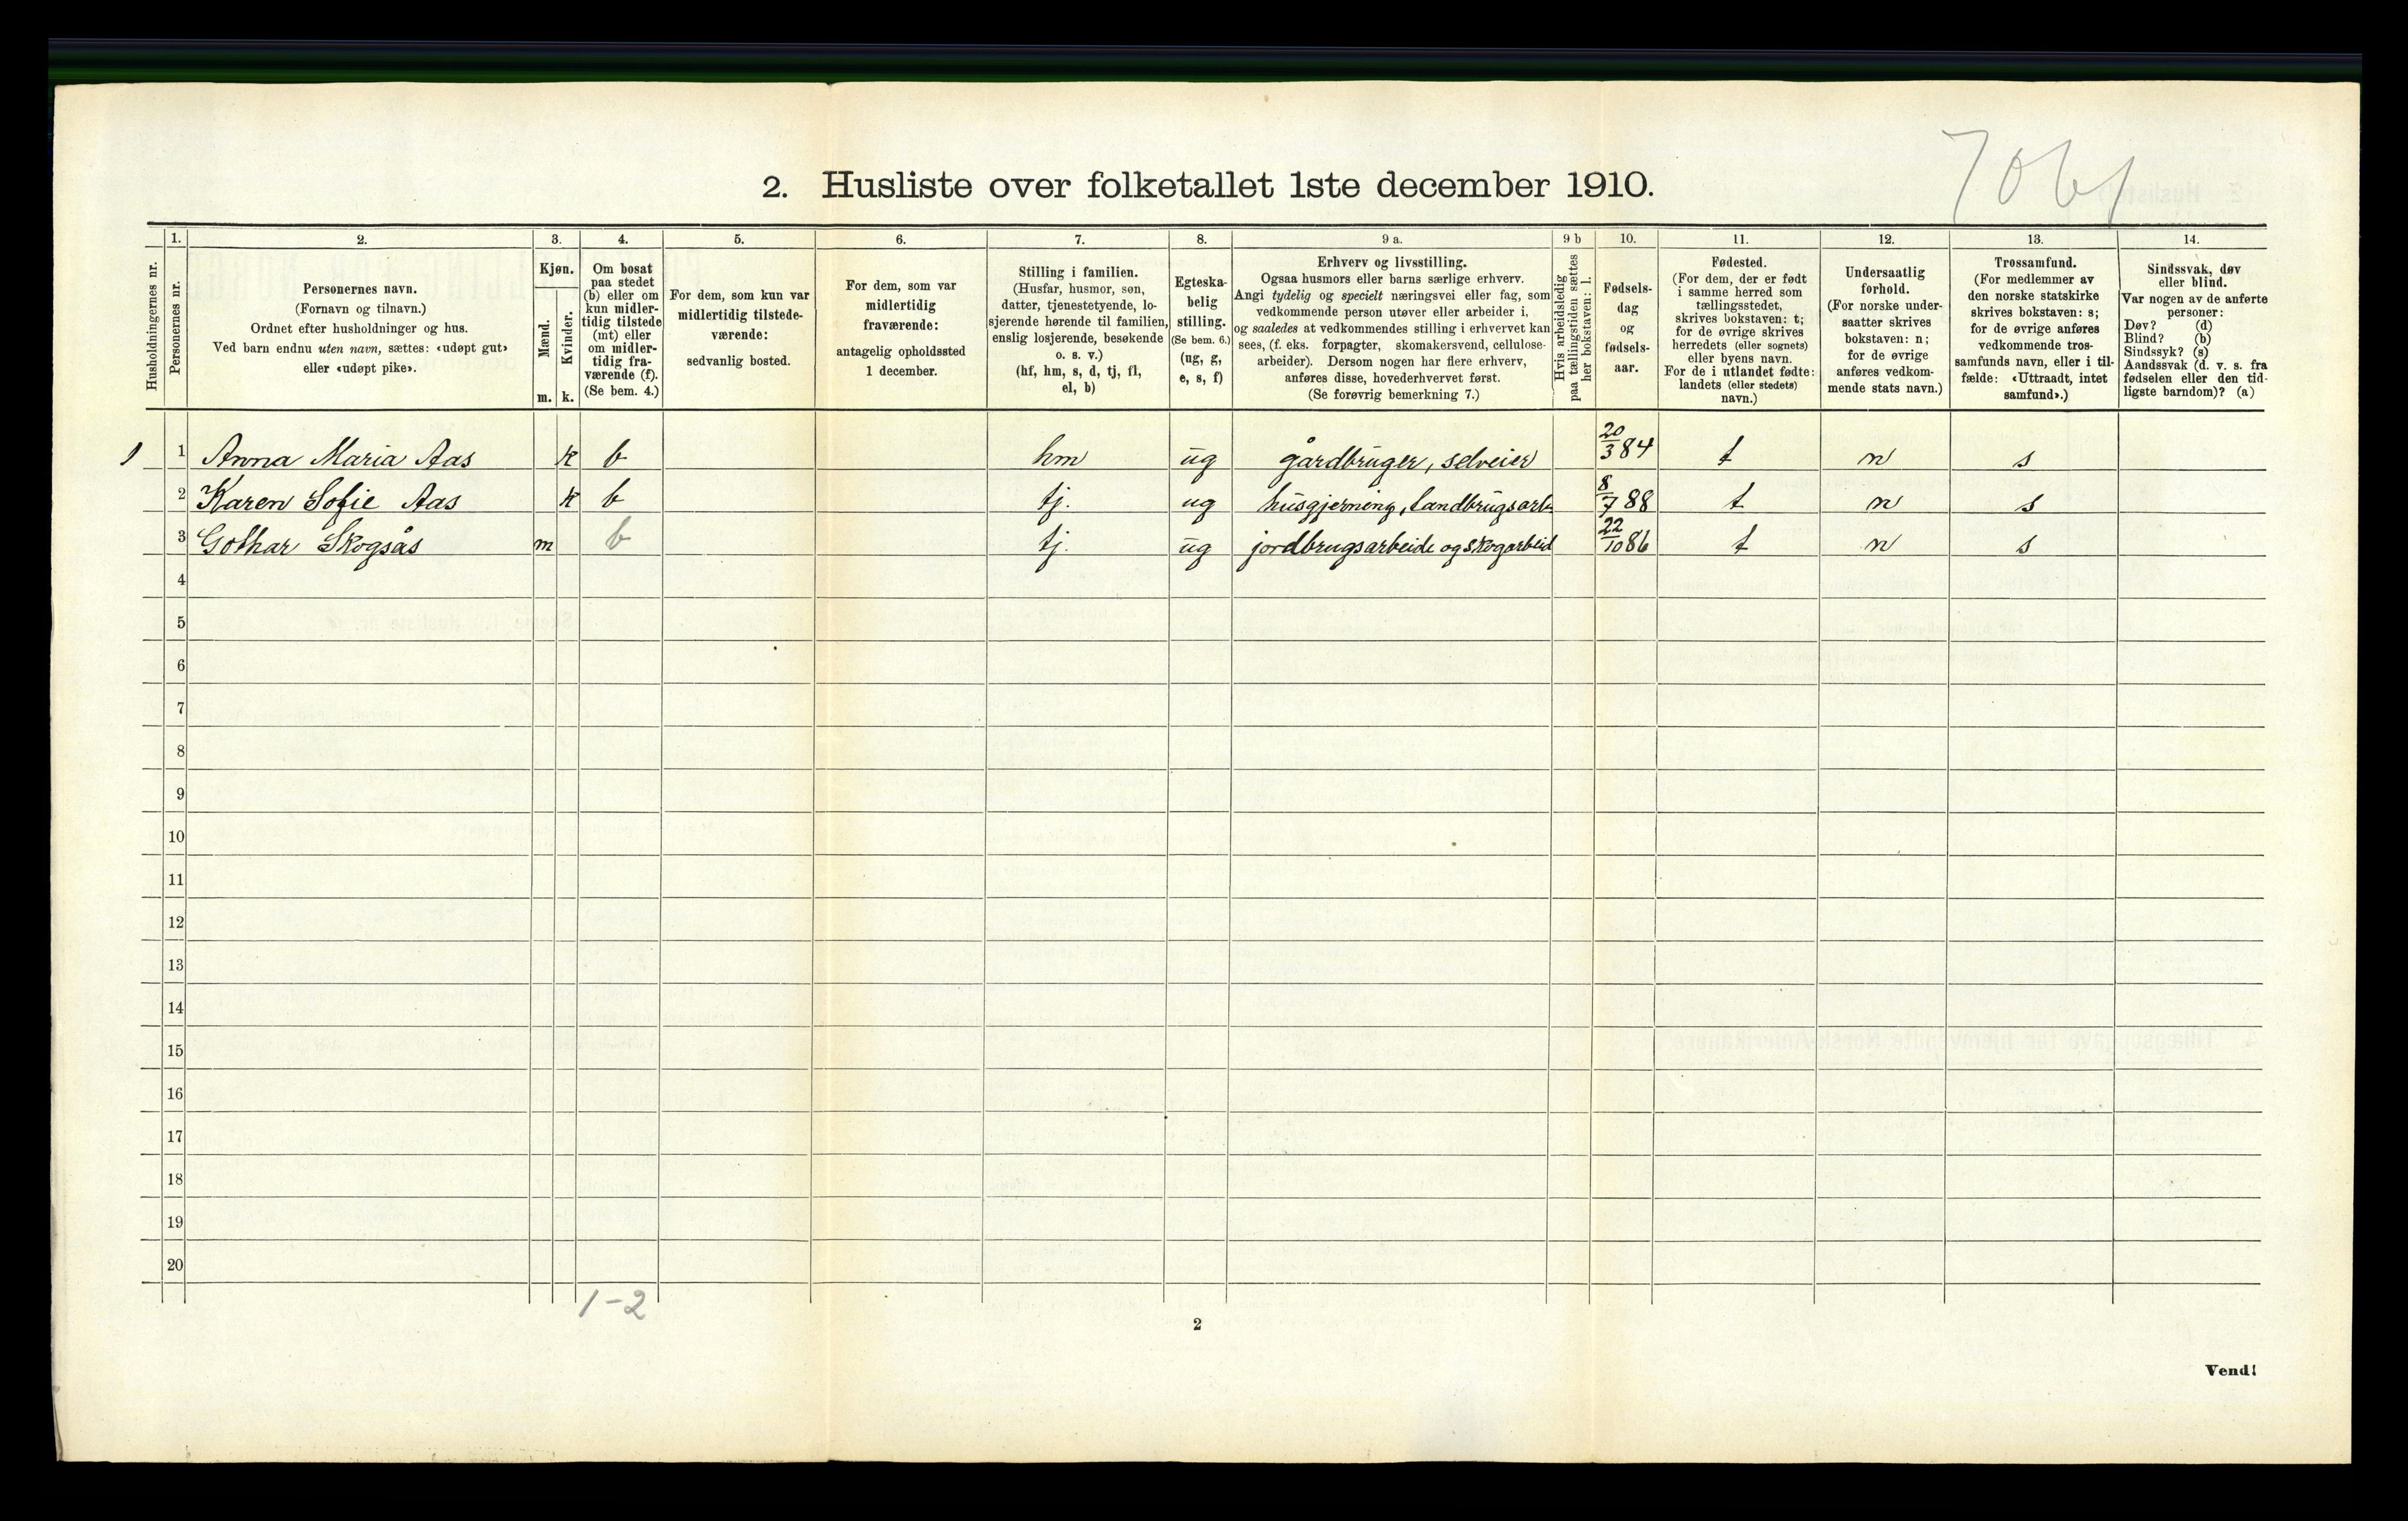 7061
2. Husliste over folketallet 1ste december 1910.
Husholdningernes nr.
1.
Personernes nr.
2.
Personernes navn.
(Fornavn og tilnavn.)
Ordnet efter husholdninger og hus.
Ved barn endnu uten navn, sættes: «udøpt gut»
eller «udøpt pike».
3.
Kjøn.
Mænd.
Kvinder.
m. k.
4.
Om bosat
paa stedet
(b) eller om
kun midler-
tidig tilstede
(mt) eller
om midler-
tidig fra-
værende (f).
(Se bem. 4.)
5.
For dem, som kun var
midlertidig tilstede-
værende:
sedvanlig bosted.
6.
For dem, som var
midlertidig
fraværende:
antagelig opholdssted
1 december.
7.
Stilling i familien.
(Husfar, husmor, søn,
datter, tjenestetyende, lo-
sjerende hørende til familien,
enslig losjerende, besøkende
o. s. v.)
(hf, hm, s, d, tj, fl,
el, b)
8.
Egteska-
belig
stilling.
(Se bem. 6.)
(ug, g,
e, s, f)
9 a.
Erhverv og livsstilling.
Ogsaa husmors eller barns særlige erhverv.
Angi tydelig og specielt næringsvei eller fag, som
vedkommende person utøver eller arbeider i,
og saaledes at vedkommendes stilling i erhvervet kan
sees, (f. eks. forpagter, skomakersvend, cellulose-
arbeider). Dersom nogen har flere erhverv,
anføres disse, hovederhvervet først.
(Se forøvrig bemerkning 7.)
9 b
Hvis arbeidsledig
paa tællingstiden sættes
her bokstaven: l.
10.
Fødsels-
dag
og
fødsels-
aar.
11.
Fødested.
(For dem, der er født
i samme herred som
tællingsstedet,
skrives bokstaven: t;
for de øvrige skrives
herredets (eller sognets)
eller byens navn.
For de i utlandet fødte:
landets (eller stedets)
navn.)
12.
Undersaatlig
forhold.
(For norske under-
saatter skrives
bokstaven: n;
for de øvrige
anføres vedkom-
mende stats navn.)
13.
Trossamfund.
(For medlemmer av
den norske statskirke
skrives bokstaven: s;
for de øvrige anføres
vedkommende tros-
samfunds navn, eller i til-
fælde: «Uttraadt, intet
samfund».)
14.
Sindssvak, døv
eller blind.
Var nogen av de anførte
personer:
Døv? (d)
Blind? (b)
Sindssyk? (s)
Aandssvak (d. v. s. fra
fødselen eller den tid-
ligste barndom)? (a)
1 1 Anna Maria Aas k b hm ug gårdbruger, selveier 20/3 84 t n s
2 Karen Sofie Aas k b tj. ug husgjerning, landbrugsarb. 8/7 88 t n s
3 Gothar Skogsås m b tj. ug jordbrugsarbeide og skogarbeid 22/10 86 t n s
4
5
6
7
8
9
10
11
12
13
14
15
16
17
18
19
20
1-2
2
Vend!